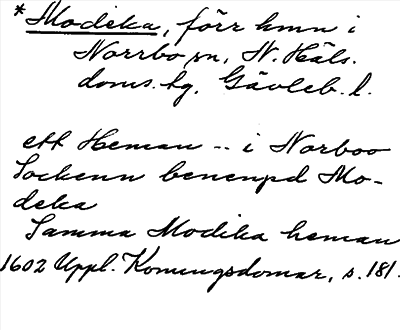 * Modeka, förr hmn i
Norrbo sn, N. Häls.
doms. tg, Gävleb. l.
ett Heman -- i Norboo
Sockenn benempd Mo-
deka
Samma Modika heman
1602 Uppl. Konungsdomar, s. 181.